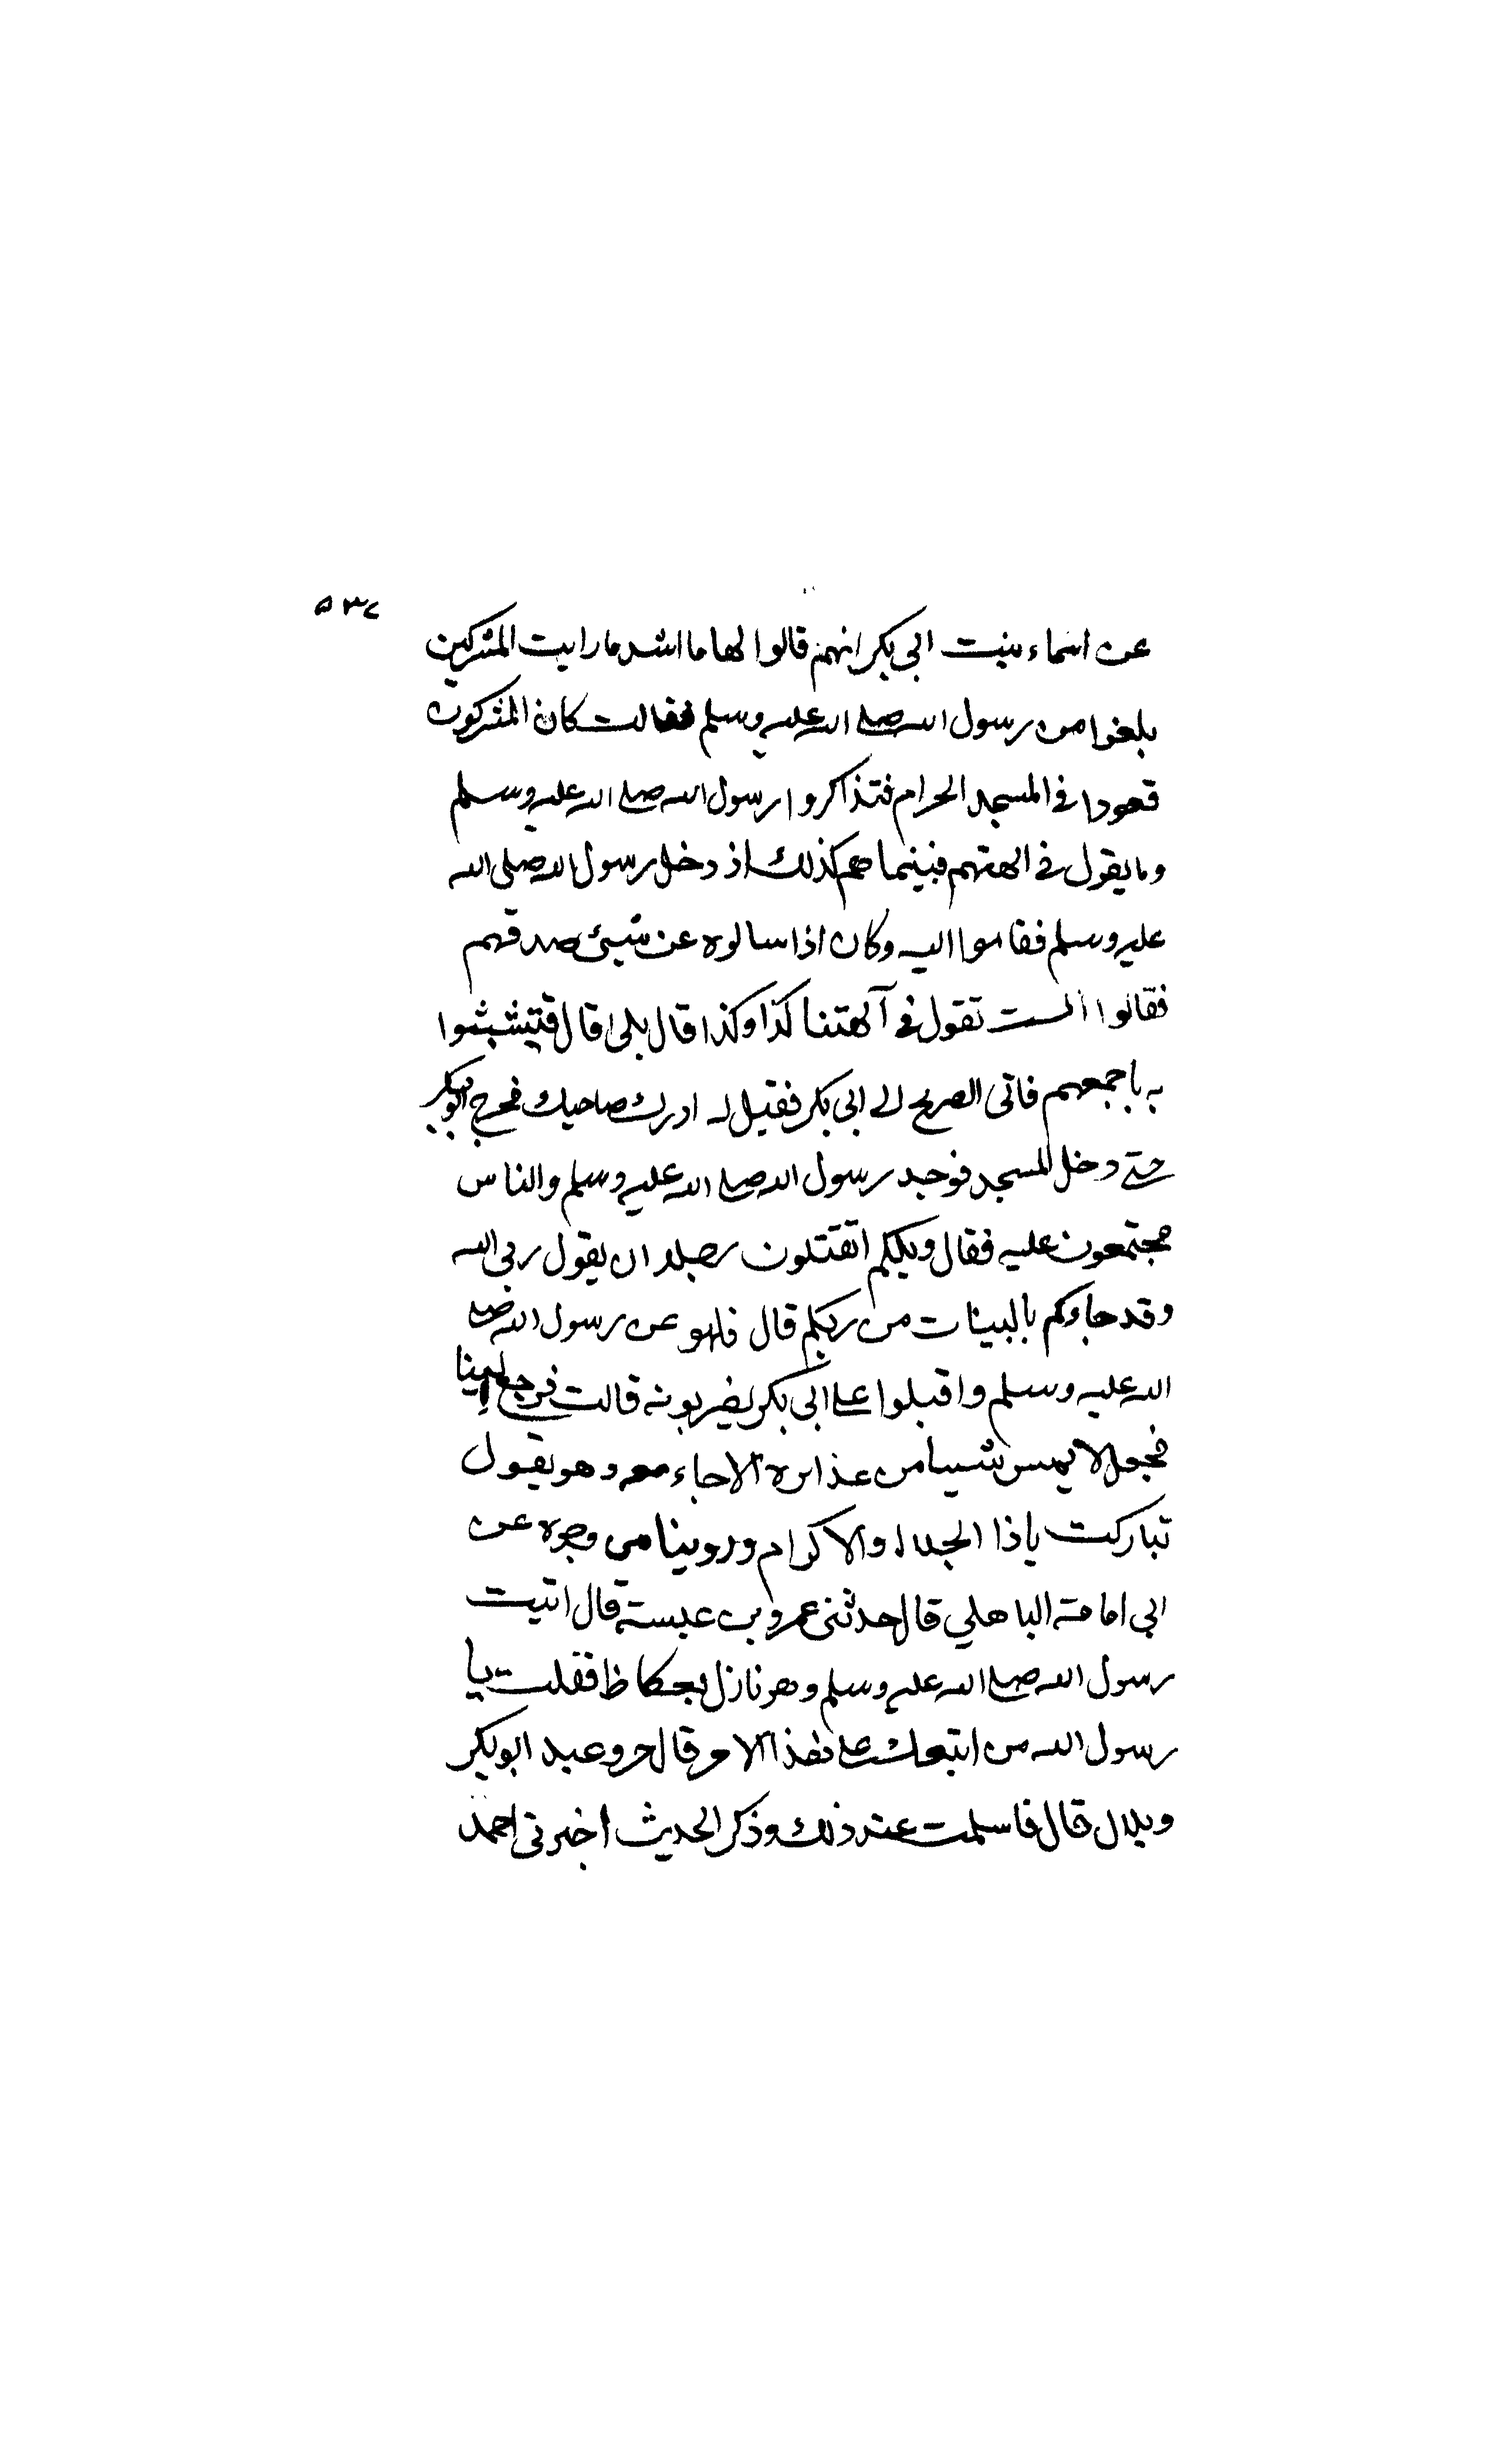 ٥٣٧
عن اسماء بنت ابي بكر انهم قالوا لها ما اشد ما رايت المشركين
بلغوا من رسول الله صلى الله عليه وسلم فقالت كان المشركون
قعودا في المسجد الحرام فتذاكروا رسول الله صلى الله عليه وسلم
وما يقول في الهتهم فبينما هم كذلك اذ دخل رسول الله صلى الله
عليه وسلم فقاموا اليه وكان اذا سالوه عن شيئ صدقهم
فقالوا الست تقول في آلهتنا كذا وكذا قال بلى قال فتشبثوا
به باجمعهم فاتى الصريخ الى ابى بكر فقيل له ادرك صاحبك فخرج ابو بكر
حتى دخل المسجد فوجد رسول الله صلى الله عليه وسلم والناس
مجتمعون عليه فقال ويلكم اتقتلون رجلا ان يقول ربى الله
وقد جاءكم بالبينات من ربكم قال فلهو عن رسول الله صلى
الله عليه وسلم واقبلوا على ابى بكر يضربونه قالت فرجع الينا
فجعل لا يمس شيبا من غدائره الا جاء معه وهو يقول
تباركت ياذا الجلال والاكرام وروينا من وجوه عن
ابى امامة الباهلي قال حدثنى عمرو بن عبسة قال اتيت
رسول الله صلى الله عليه وسلم وهو نازل بعكاظ فقلت يا
رسول الله من اتبعك على هذا الامر قال حر وعبد ابو بكر
وبلال قال فاسلمت عند ذلك وذكر الحديث اخبرنى احمد